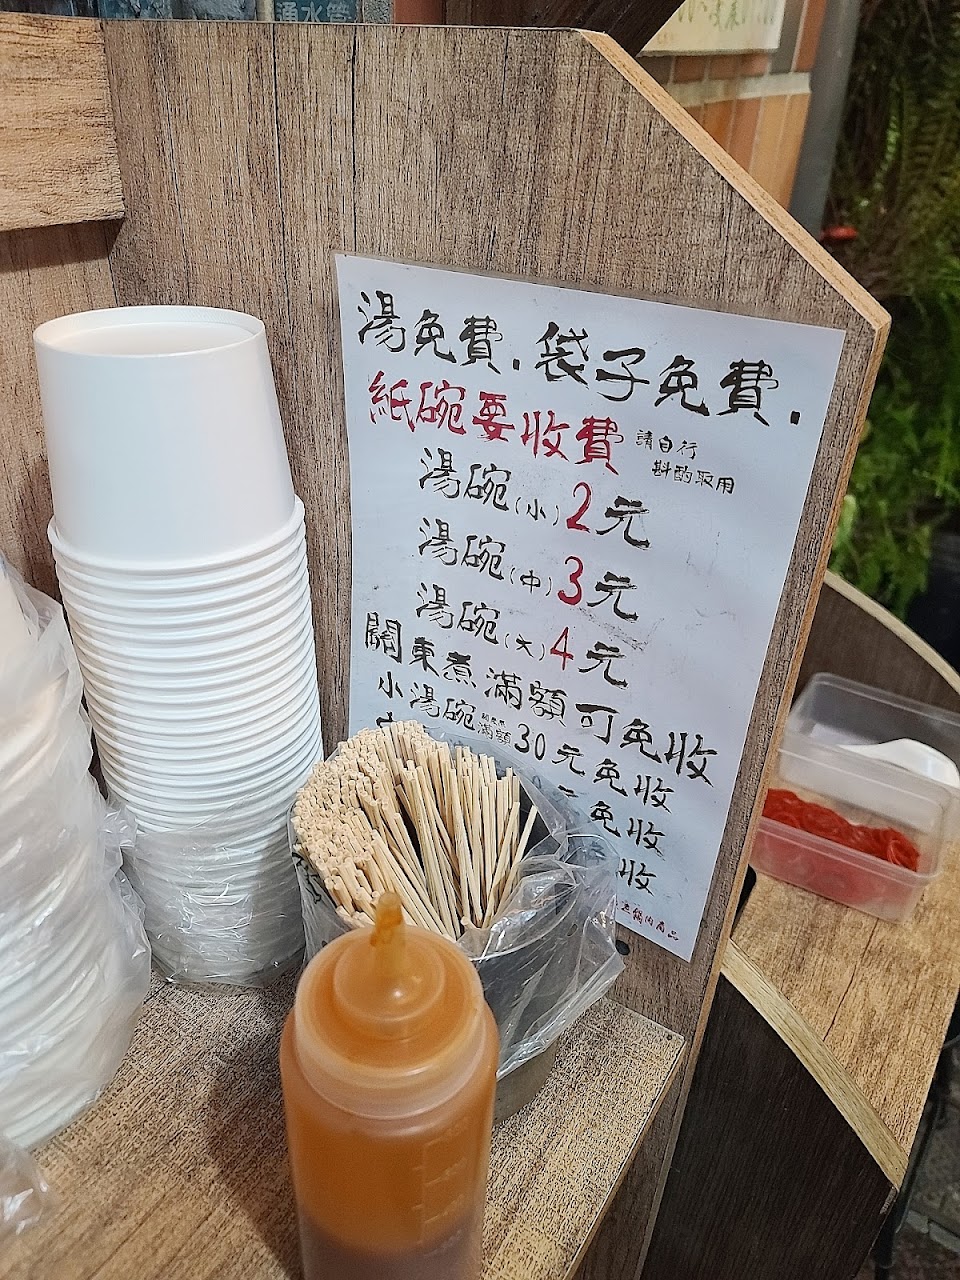 湧水管
湯免費.袋子免費.
紙碗要收費 請自行
斟酌取用
湯碗(小)2元
湯碗(中)3元
湯碗(大)4元
關東煮滿額可免收
小湯碗 滿額30元免收
元免收
收
鍋肉商品